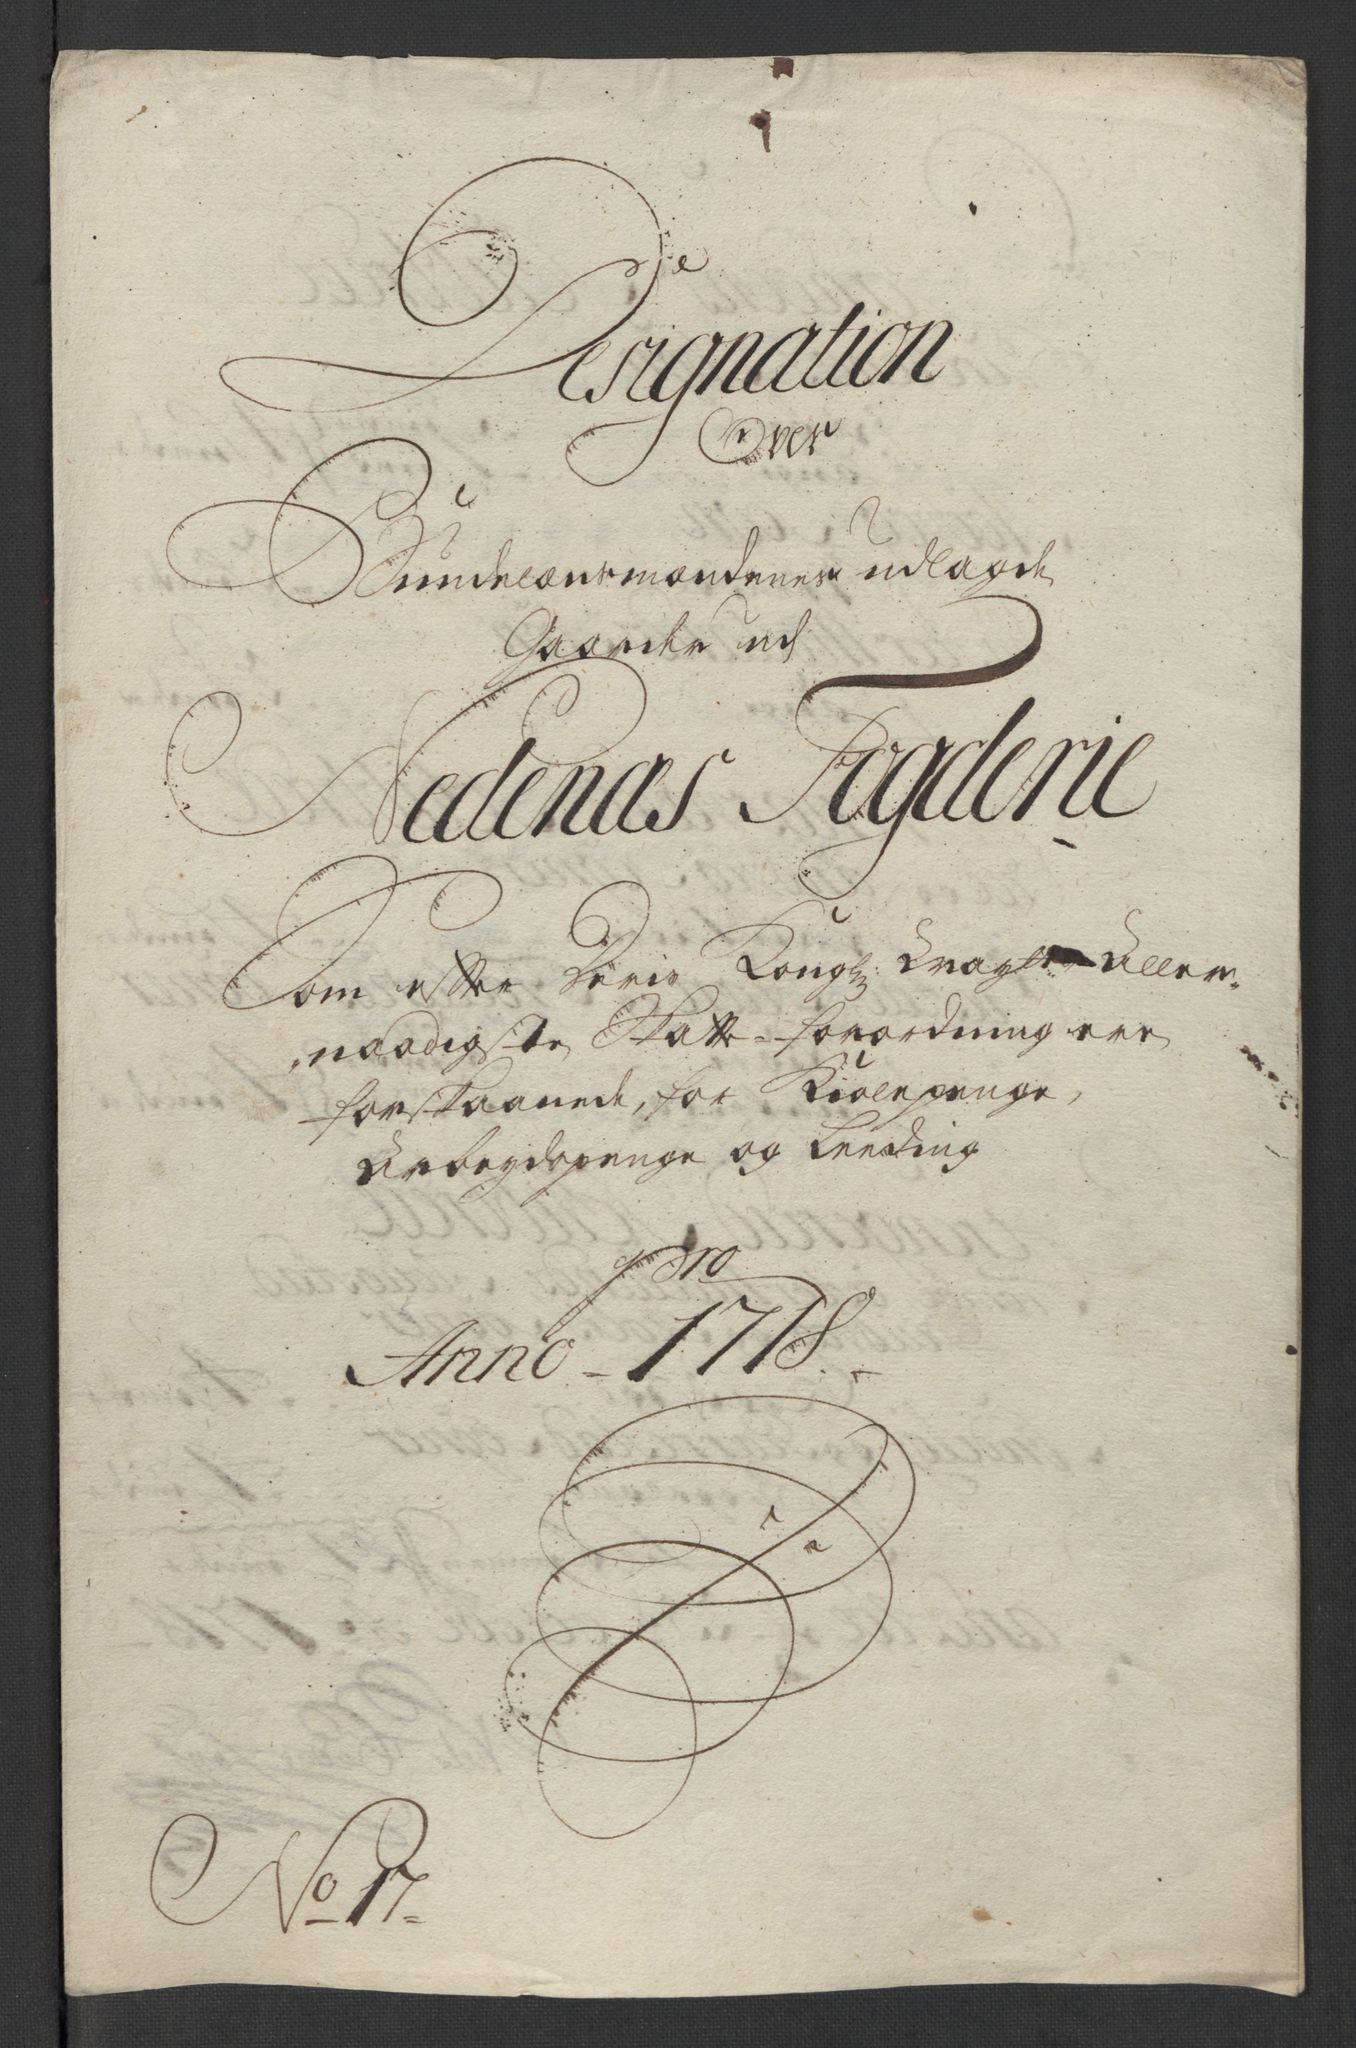 Designation
Over
Bundelænsmændenes udlagde
Gaarder udj
Nedenæs Fogderie
Som efter Deris Kongl: Mayts Aller-
naadigste Skatte-forordning ere
forskaanede, for Kiølepenge,
Arbeydspenge og Leeding
Pro
Anno - 1718.-
No 17.